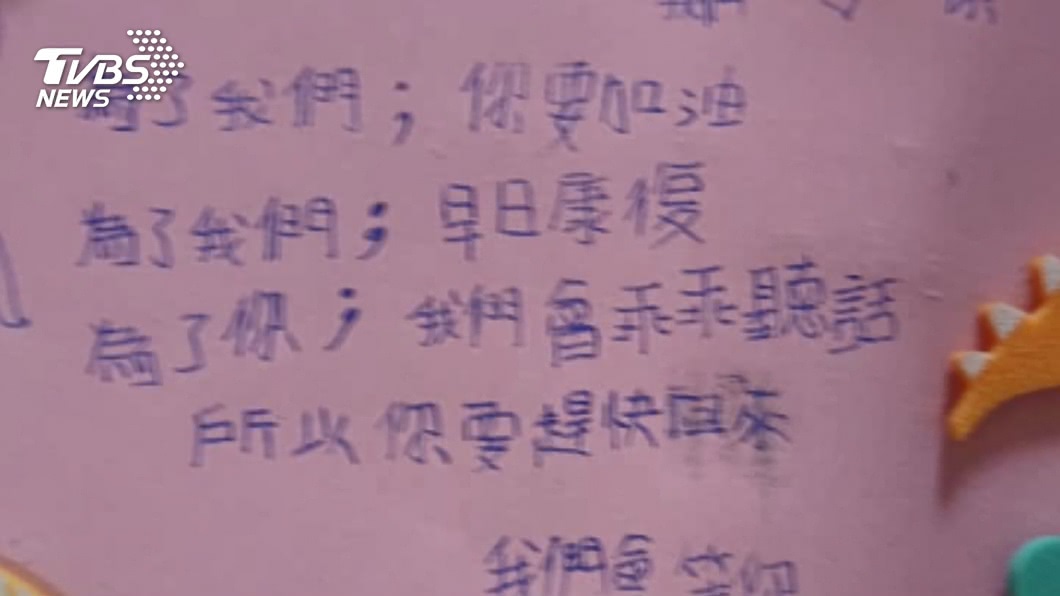 TVBS
NEWS
為了我們；你要加油
為了我們；早日康復
為了你；我們會乖乖聽話
所以你要趕快回來
我們會等你